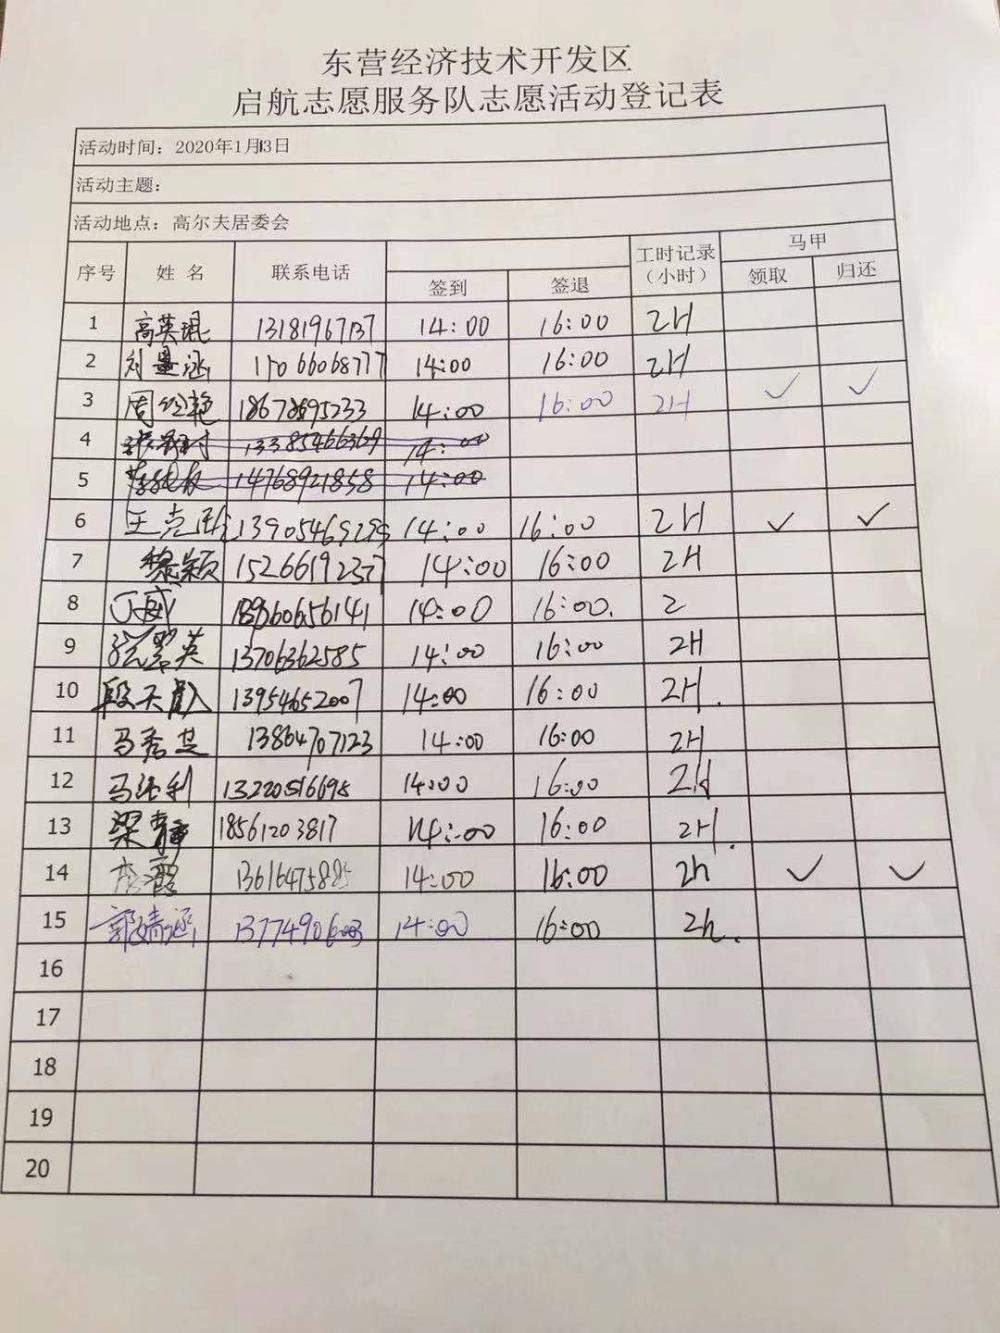 东营经济技术开发区
启航志愿服务队志愿活动登记表
活动时间：2020年1月13日
活动主题：
活动地点：高尔夫居委会
序号 姓 名 联系电话 签到 签退 工时记录（小时） 马甲 领取 归还
1 高英琨 13181967137 14:00 16:00 2H
2 刘墨涵 17066068777 14:00 16:00 2H
3 周 艳 18678695233 14:00 16:00 2H ✓ ✓
4 13385466369 14:00
5 14768921858 14:00
6 王克 13905469299 14:00 16:00 2H ✓ ✓
7 黎颖 15266192377 14:00 16:00 2H
8 丁威 14:00 16:00. 2
9 英 13706362585 14:00 16:00 2H
10 段天 13954652007 14:00 16:00 2H.
11 马秀芝 13864707123 14:00 16:00 2H
12 马 利 13220516695 14:00 16:00 2H
13 梁静 18561203817 14:00 16:00 2H.
14 霞 13616475885 14:00 16:00 2h ✓ ✓
15 郭婧涵 14:00 16:00 2h.
16
17
18
19
20